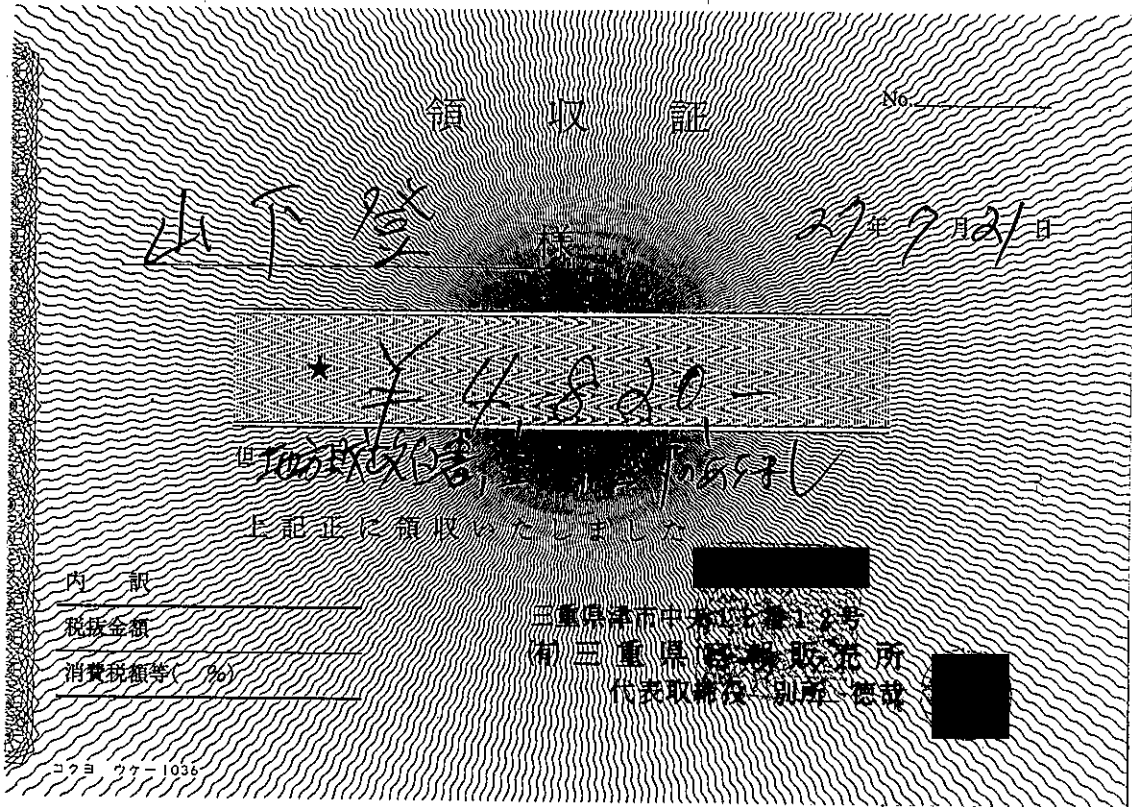 領収証
No.
山下登 様
27年7月21日
★ ¥4,820-
但
上記正に領収いたしました
内訳
税抜金額
消費税額等( %)
三重県津市中央18番12号
(有)三重県官報販売所
代表取締役 別所 徳哉
コクヨ ウケ-1036